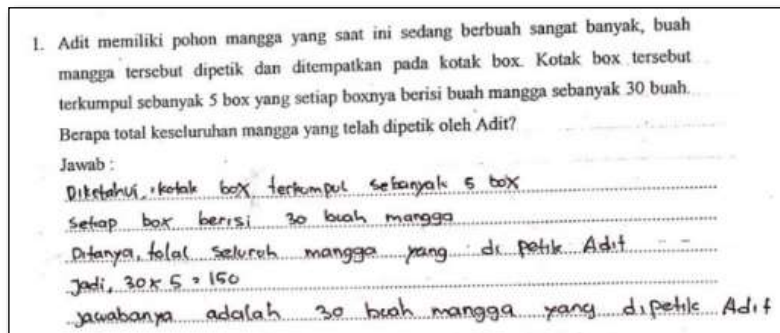 1. Adit memiliki pohon mangga yang saat ini sedang berbuah sangat banyak, buah
mangga tersebut dipetik dan ditempatkan pada kotak box. Kotak box tersebut
terkumpul sebanyak 5 box yang setiap boxnya berisi buah mangga sebanyak 30 buah.
Berapa total keseluruhan mangga yang telah dipetik oleh Adit?
Jawab :
Diketahui, kotak box terkumpul sebanyak 5 box
Setiap box berisi 30 buah mangga
Ditanya, total seluruh mangga yang di petik Adit
Jadi, 30 x 5 = 150
Jawabanya adalah 30 buah mangga yang dipetik Adit